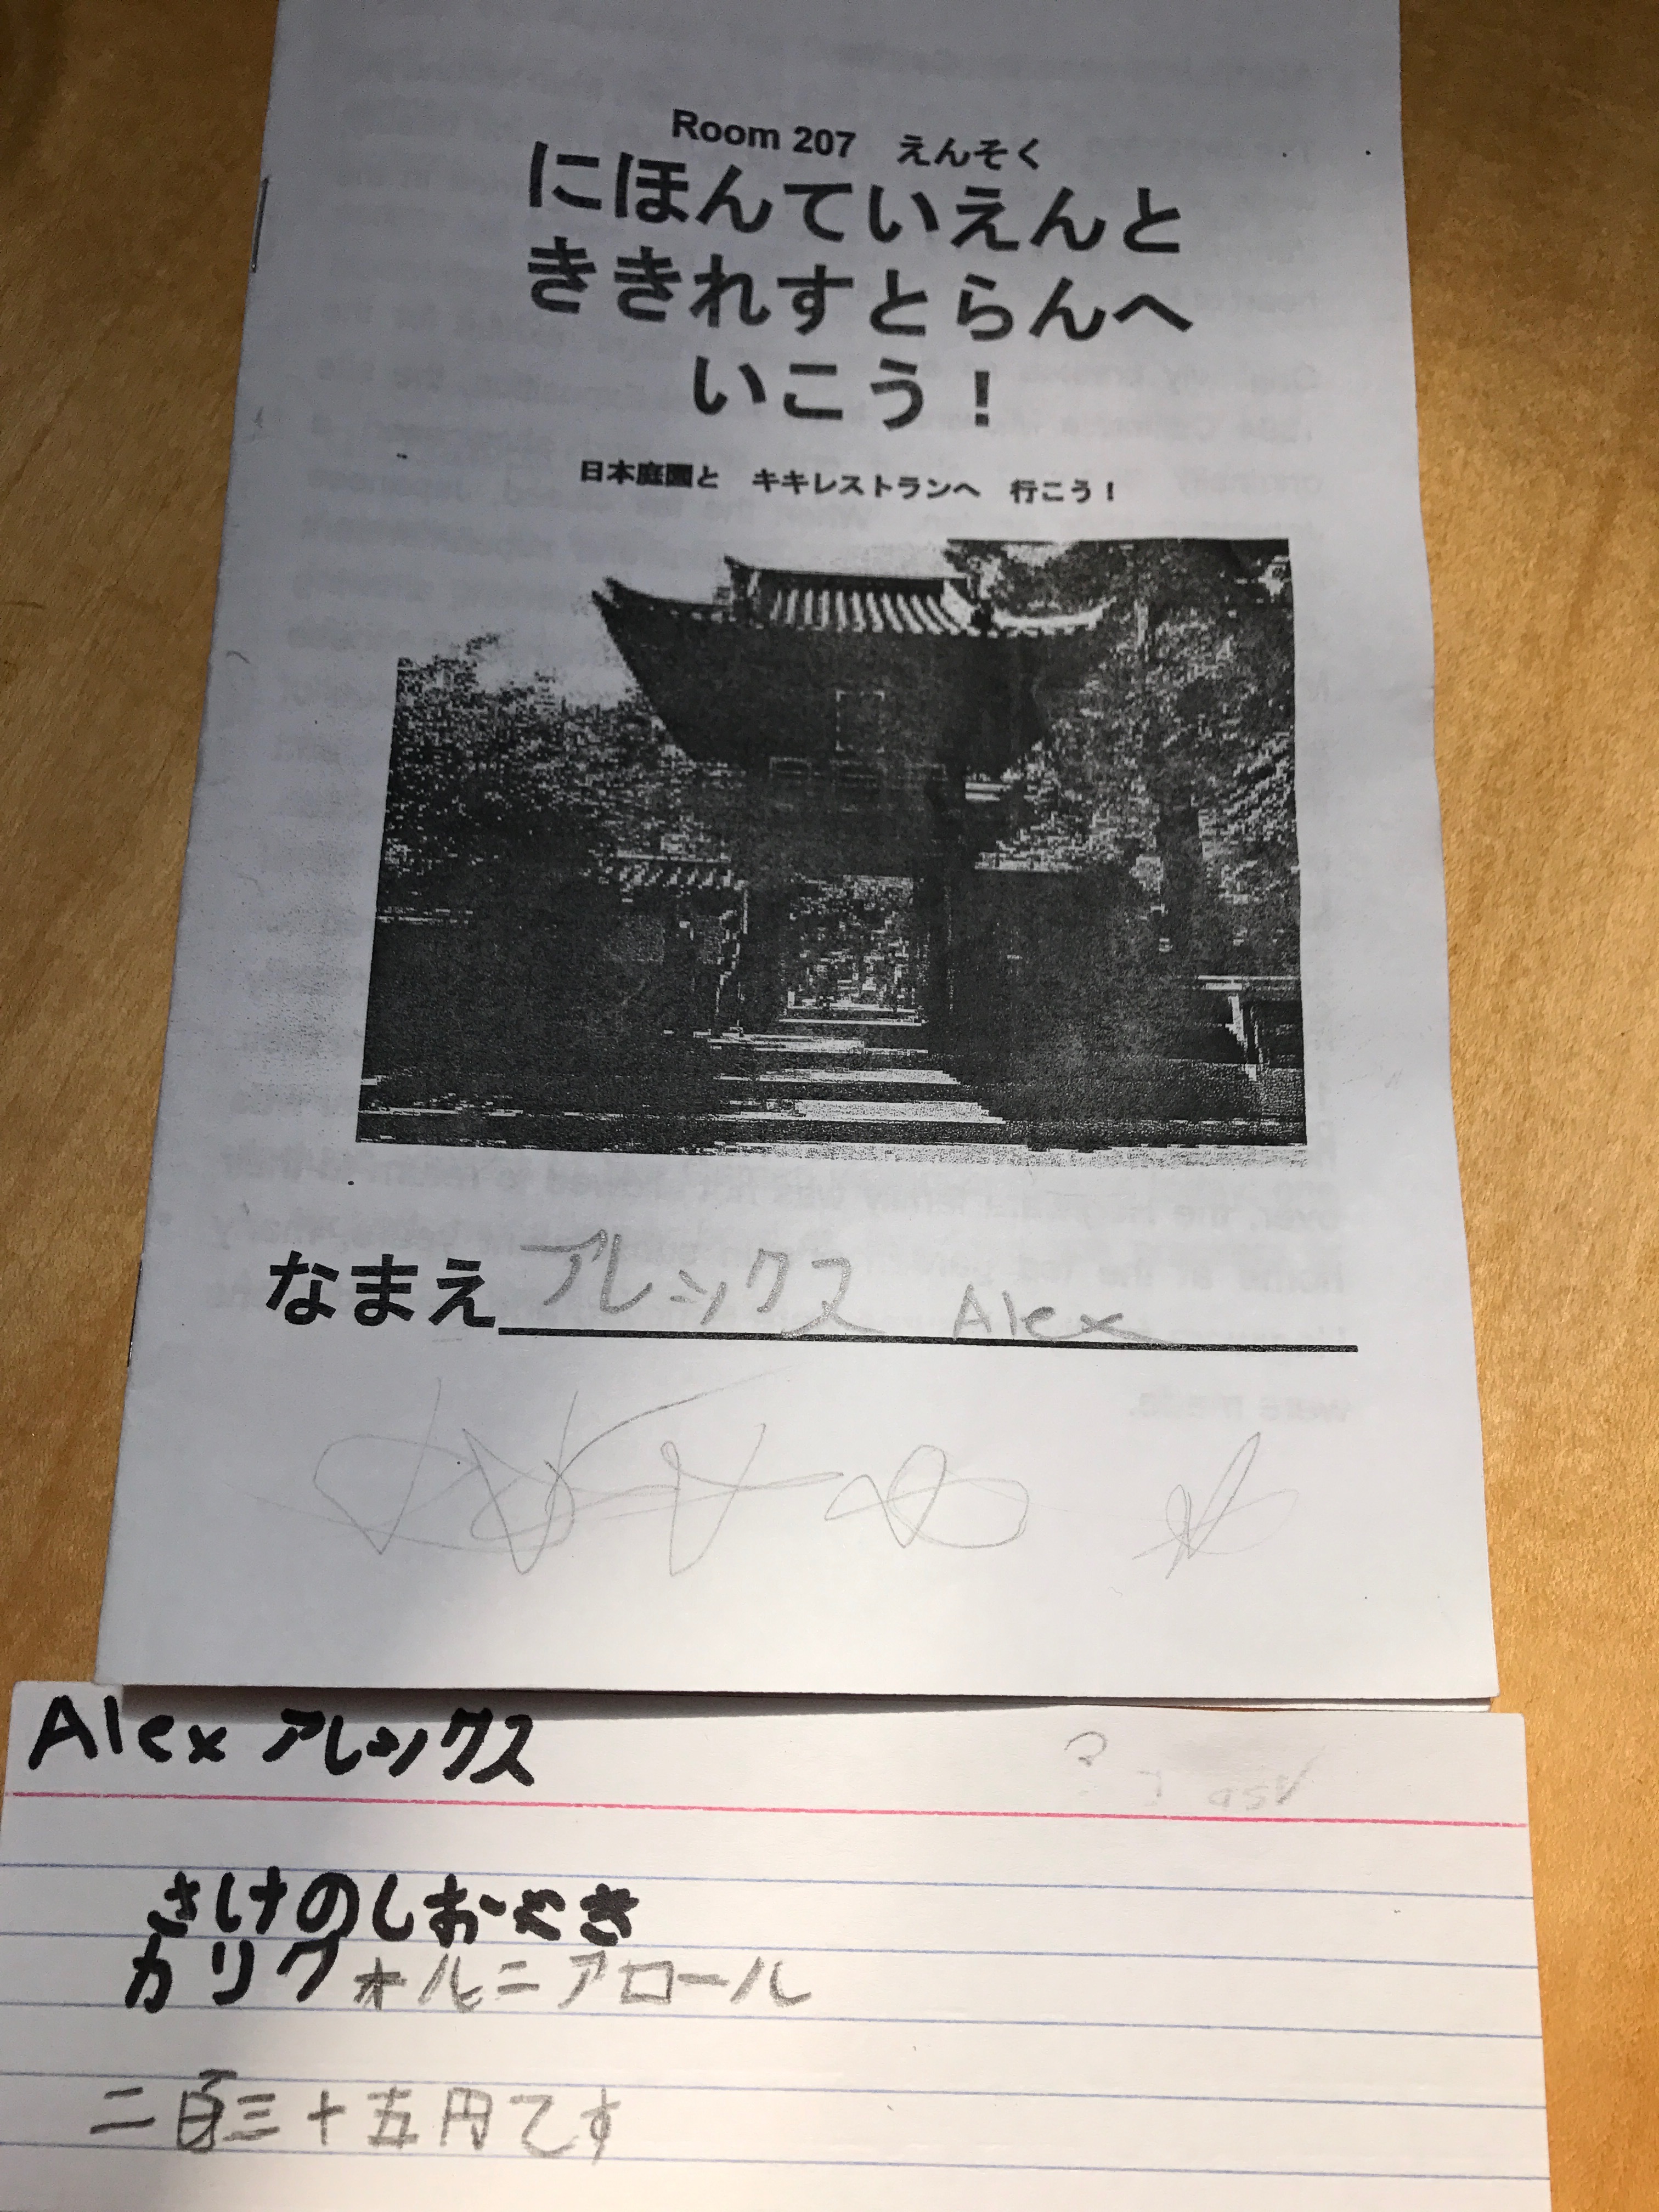 Room 207 えんそく
にほんていえんと
ききれすとらんへ
いこう！
日本庭園と キキレストランへ 行こう！
なまえ アレックス Alex
Alex アレックス
さけのしおやき
カリフォルニアロール
二百三十五円です